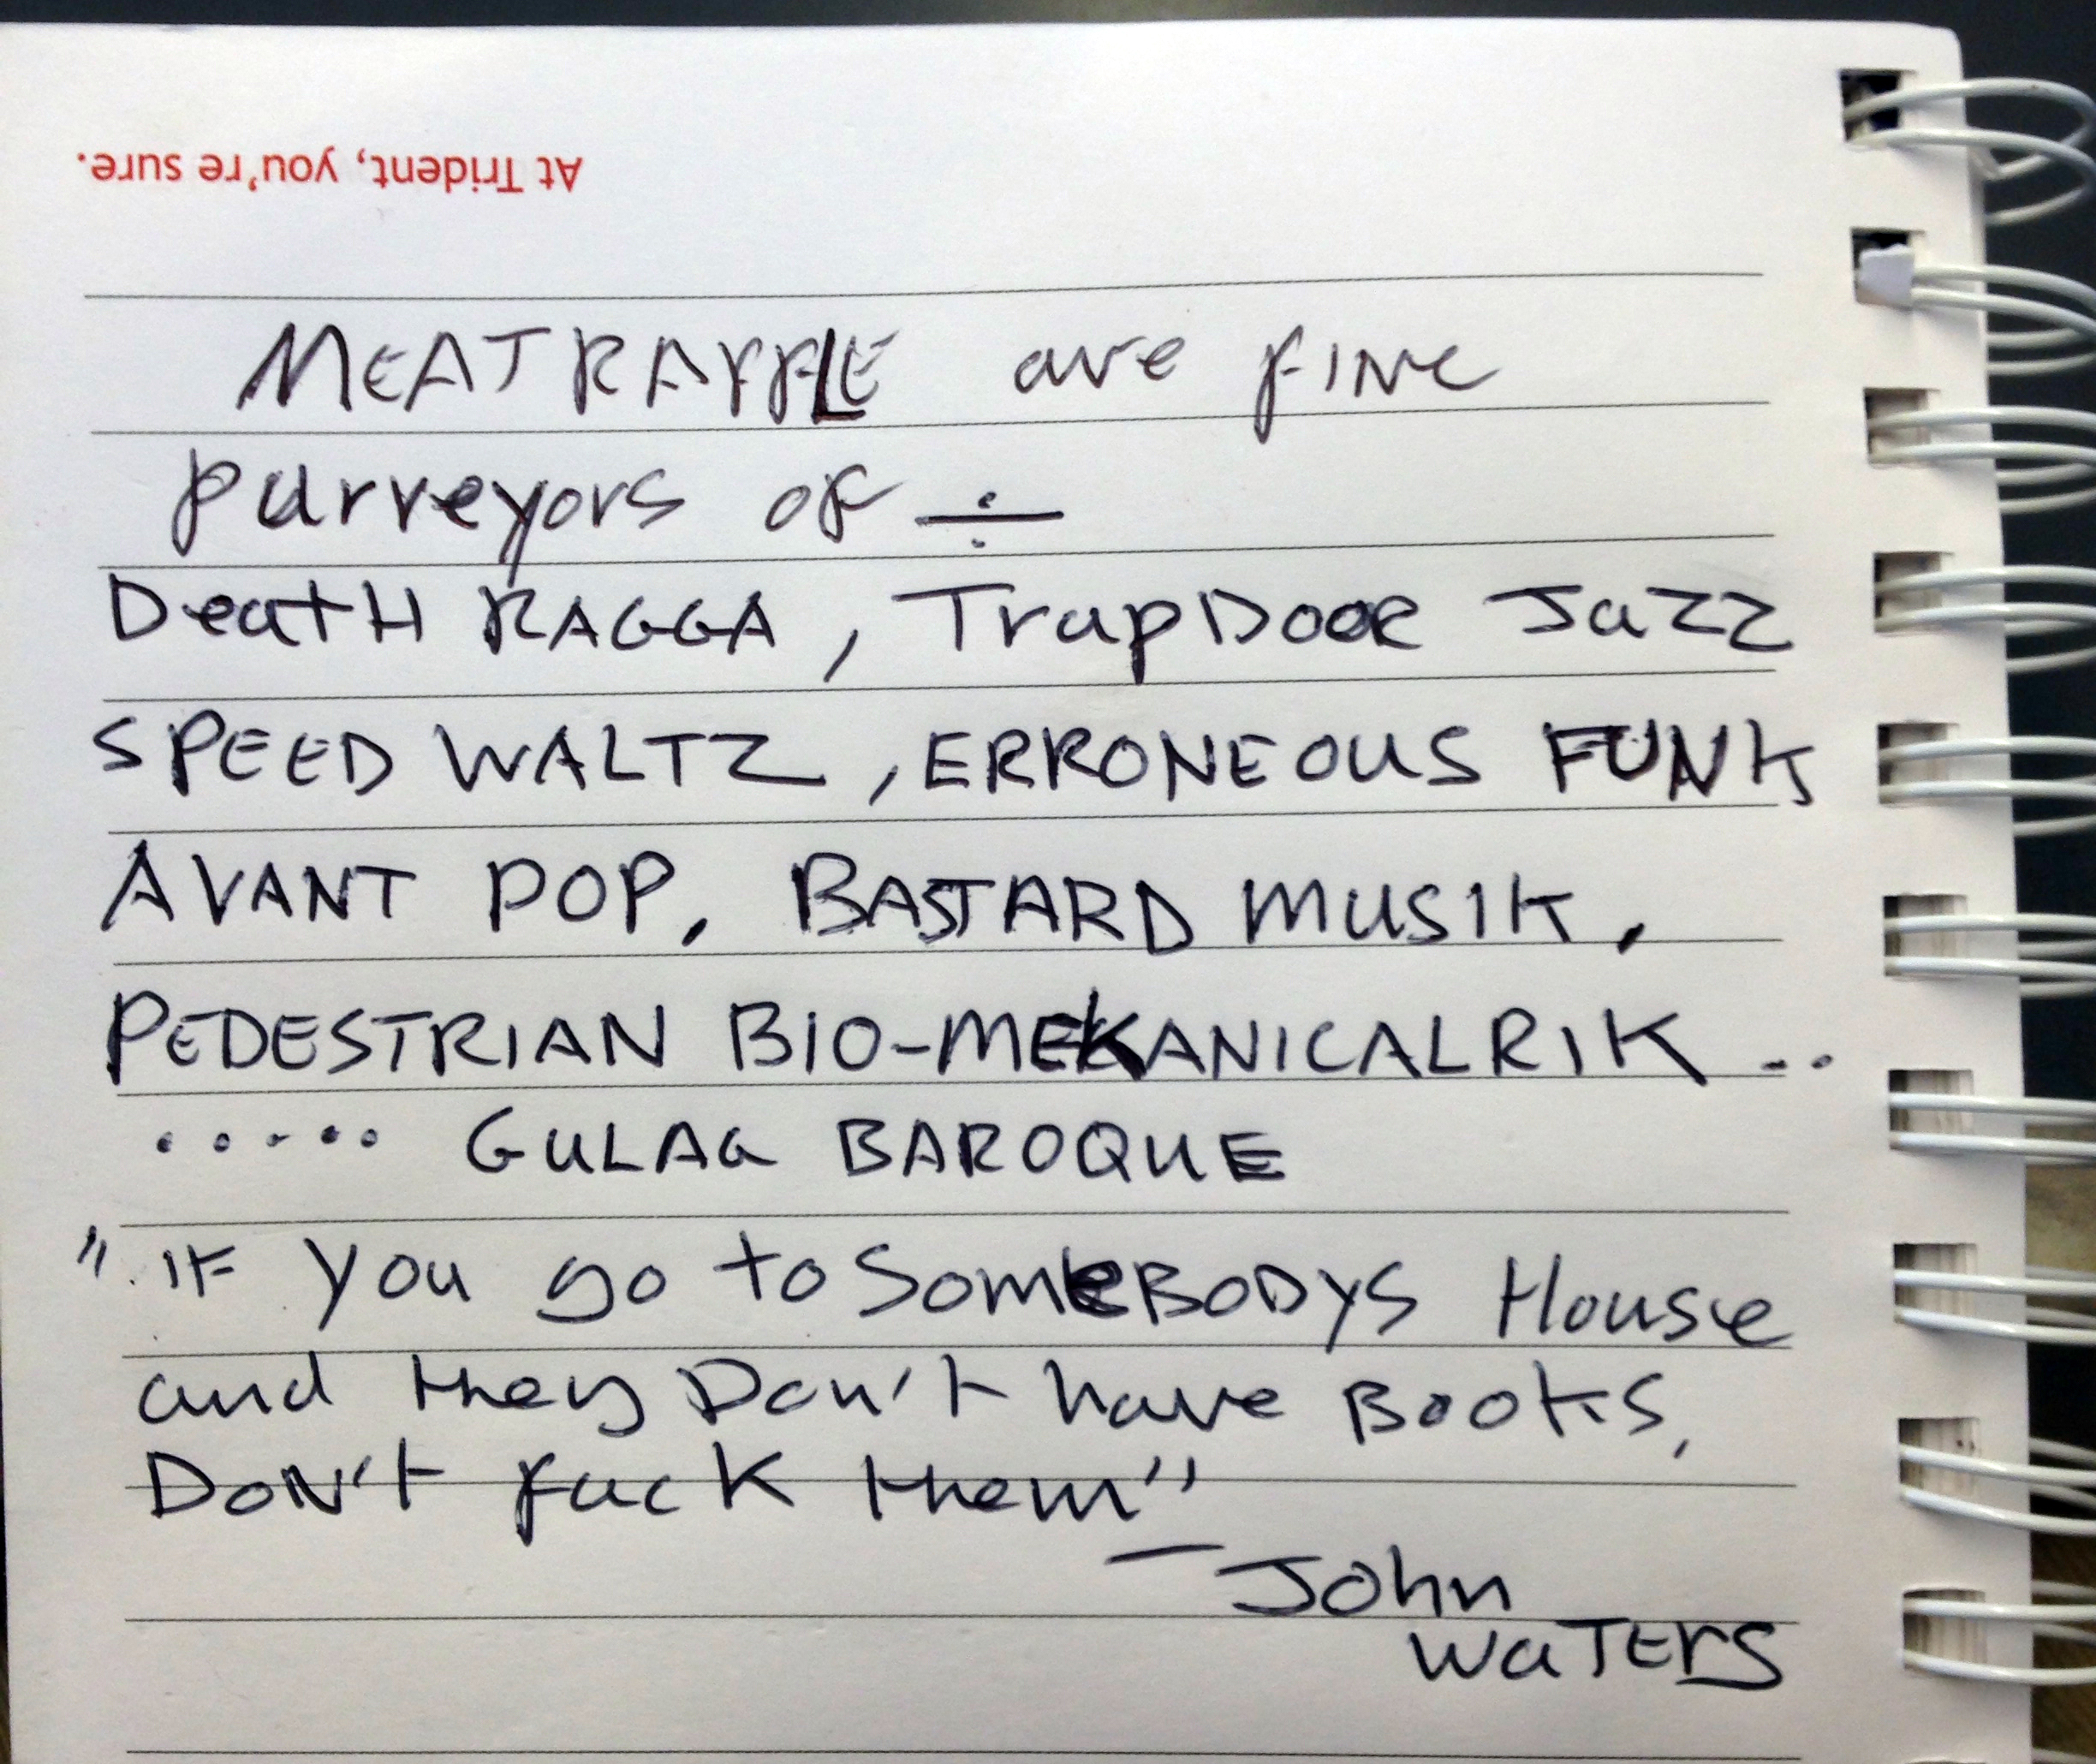 At Trident, you're sure.
MEATRAFFLE are fine
purveyors of ÷
DeatH RAGGA, TrapDOOR Jazz
SPEED WALTZ, ERRONEOUS FUNK
AVANT POP, BASTARD MUSIK,
PEDESTRIAN BIO-MEKANICALRIK ..
..... GULAG BAROQUE
"IF you go to SomeBODYS House
and they Don't have Books,
DON't fuck them"
— John
WaTErS